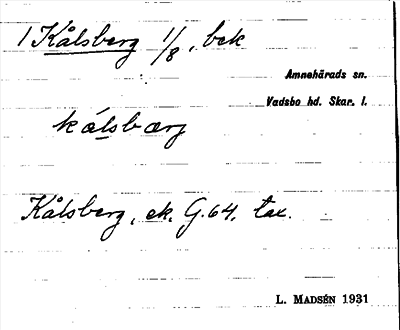 1 Kålsberg 1/8, bek
Amnehärads sn.
Vadsbo hd. Skar. l.
kálsbærg
Kålsberg, ek. G. 64. tax.
L. MADSÉN 1931